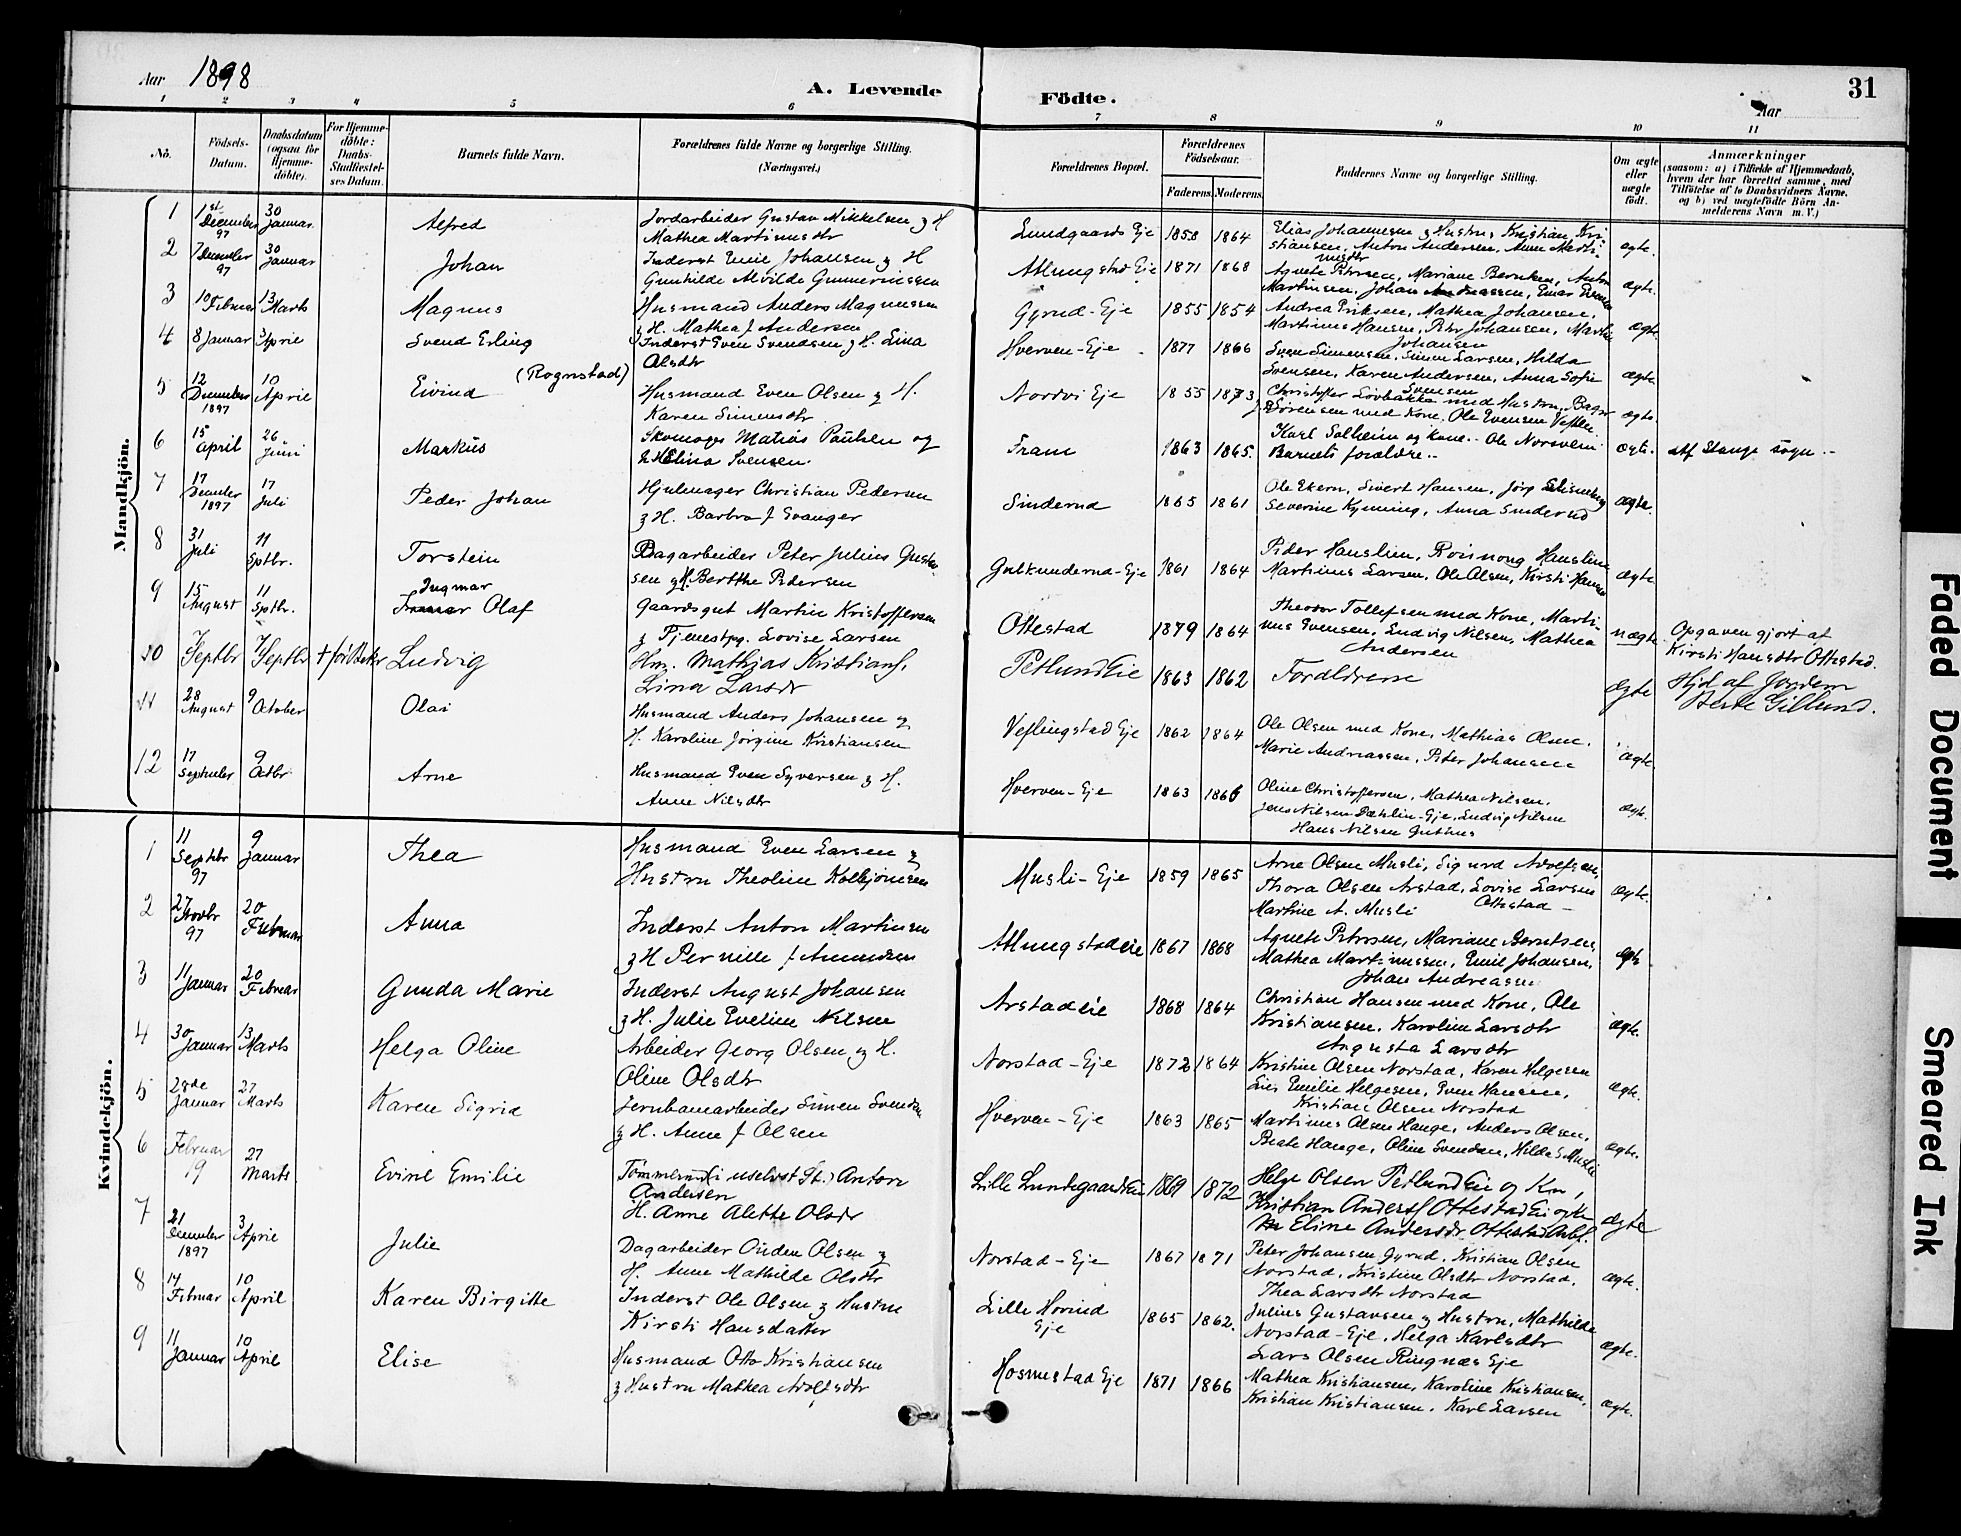 Aar 1898
A. Levende Födte.
Aar
31
1 2 3 4 5 6 7 8 9 10 11
No.
Födsels-Datum.
Daabsdatum (ogsaa for Hjemme-döbte).
For Hjemme-döbte: Daabs-Stadfæstel-ses Datum.
Barnets fulde Navn.
Forældrenes fulde Navne og borgerlige Stilling. (Næringsvei.)
Forældrenes Bopæl.
Forældrenes Födselsaar.
Faderens. Moderens.
Faddernes Navne og borgerlige Stilling.
Om ægte eller uægte födt.
Anmærkninger (saasom: a) i Tilfælde af Hjemmedaab, hvem der har forrettet samme, med Tilföielse af to Daabsvidners Navne, og b) ved uægtefödte Börn An-melderens Navn m. V.)
Mandkjön.
1 1st December 97 30 Januar Alfred Jordarbeider Gustav Mikkelsen & H Mathea Martinusdtr Lundgaards Eje 1858 1864 Elias Johannesen & Hustru, Kristian Kristiansen, Anton Andersen, Anne Martinusdtr ægte.
2 7 December 97 30 Januar Johan Inderst Emil Johansen & H Gunhilde Alvilde Atlungstad Eje 1871 1868 Agnete Petersen, Mariane Berntsen, Anton Martinsen, Johan Andreassen, Einar ægte.
3 10 Februar 13 Marts Magnus Husmand Anders Magnussen & H. Mathea f Andersen Gyrud-Eje 1855 1854 Andrea Eriksen, Mathea Johansen, Martinus Hansen, Peter Johansen, Martha Johansen ægte.
4 8 Januar 3 Aprie Svend Erling Inderst Even Svendsen & H. Lina Olsdtr Hverven-Eje 1877 1866 Sven Simensen, Simen Larsen, Hilda Svensen, Karen Andersen, Anna Sofie Svensen ægte.
5 12 December 1897 10 April Eivind (Rognstad) Husmand Even Olsen & H. Karen Simensdtr Nordvi Eje 1855 1873 Christoffer Lövbakke med Hustru, Sörensen med Kone, Ole Evensen ægte.
6 15 April 26 Juni Markus Skomager Matias Paulsen og H Elina Svensen. Fram 1863 1865. Karl Solheim og kone.- Ole Barnets forældre.- ægte. Af Stange sogn.-
7 17 December 1897 17 Juli Peder Johan Hjulmager Christian Pedersen & H. Barbra f Evanger Sinderud 1865 1861 Ole Ekern, Sivert Hansen, Jörg Severine Kynning, Anna Sinderud ægte.
8 31 Juli 11 Sptbr. Torstein Dagarbeider Peter Julius Gustavsen & H Berthe Pedersen Gulkunderud-Eje 1861 1864 Peder Hauslien, Hauslien Martinus Larsen, Ole Olsen, Kirsti Hansen ægte
9 15 August 11 Sptbr. Ingmar Olaf Gaardsgut Martin Kristoffersen & Tjenestpg. Lovise Larsen Ottestad 1879 1864 Theodor Tollefsen med Kone, Martinus Evensen, Ludvig Nilsen, Mathea Andersen uægte Opgaven gjort af Kirsti Hansdtr Ottestad.
10 7 Septbr 7 Septbr Ludvig Hm. Mathias Kristians. Lina Larsdr Petlund Eie 1863 1862 Foraldrene ægte Hjd af Jordem Berte Gillund.
11 28 August 9 October Olai Husmand Anders Johansen & H. Karoline Jörgine Kristiansen Veflingstad Eje 1862 1864 Ole Olsen med Kone, Mathias Olsen. Marie Andreassen, Peter Johansen ægte.
12 17 September 9 Octbr Arne Husmand Even Syversen & H. Anne Nilsdtr Hverven-Eje 1863 1866 Oline Christoffersen, Mathea Nilsen, Jens Nilsen Dæhlin-Eje, Ludvig Nilsen Hans Nilsen Guthus ægte.
Kvindekjön.
1 11 Septbr 97 9 Januar Thea Husmand Even Larsen & Hustru Theoline Kolbjönsen Musli-Eje 1859 1865 Arne Olsen Musli, Sigurd Adolfsen, Thora Olsen Arstad, Lovise Larsen Ottestad Martine A. Musli ægte.
2 27 Novbr 97 20 Februar Anna Inderst Anton Martinsen & H Pernille f Amundsen Atlungstadeie 1867 1868 Agnete Petersen, Mariane Berntsen, Mathea Martinussen, Emil Johansen, Johan Andreassen ægte
3 11 Januar 20 Februar Gunda Marie Inderst August Johansen & H. Julie Eveline Nilsen Arstadeie 1868 1864 Christian Hansen med Kone, Ole Kristiansen, Karoline Larsdtr Augusta Larsdtr ægte.
4 30 Januar 13 Marts Helga Oline Arbeider Georg Olsen & H. Oline Olsdtr Norstad-Eje 1872 1864 Kristine Olsen Norstad, Karen Helgesen Emilie Helgesen, Even Hansen, Kristian Olsen Norstad ægte.
5 28de Januar 27 Marts Karen Sigrid Jernbanearbeider Simen Svendsen & H. Anne f Olsen Hverven-Eje 1863 1865 Martinus Olsen Hauge, Anders Olsen, Beate Hauge, Oline Svendsen, Hilda S Musli ægte.
6 Februar 19 27 Marts Evine Emilie Tömmermd (i uselvst St.) Anton Andersen H. Anne Alette Olsdr Lille Lundegaard Eie 1869 1872 Helge Olsen Petlund Eie og Kn, Kristian Anders. Ottestad Ei og Kn Eline Andersdr Ottestad ægte
7 21 December 1897 3 Aprie Julie Dagarbeider Ouden Olsen & H. Anne Mathilde Olsdtr Norstad-Eje 1867 1871 Peter Johansen Gyrud, Kristian Olsen Norstad, Kristine Olsdtr Norstad, Thea Larsdtr Norstad ægte.
8 14 Februar 10 April Karen Birgitte Inderst Ole Olsen & Hustru Kirsti Hansdatter Lille Hovind Eje 1865 1862. Julius Gustavsen & Hustru, Mathilde Norstad-Eje, Helga Karlsdtr Lars Olsen Ringnæs Eje ægte.
9 11 Januar 10 April Elise Husmand Otto Kristiansen & Hustru Mathea Adolfsdtr Hosmestad Eje 1871 1866 Mathea Kristiansen, Karoline Kristiansen, Kristian Kristiansen, Karl Larsen ægte.
Faded Document
Smeared Ink